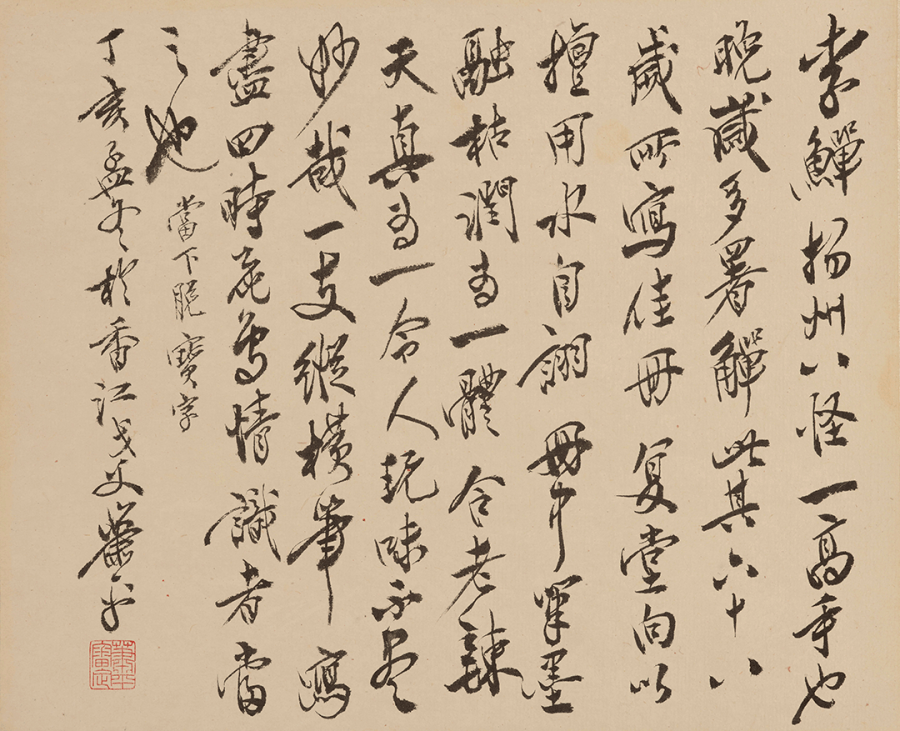 李觶揚州八怪一高手也
晚歲多署觶此其六十八
歲所寫佳冊復堂向以
擅用水自詡冊中筆墨
融枯潤為一體合老辣
天真為一令人玩味不盡
妙哉一支縱橫筆寫
盡四時花鳥情識者當
之也
當下脫寶字
丁亥孟冬於香江文蕭平